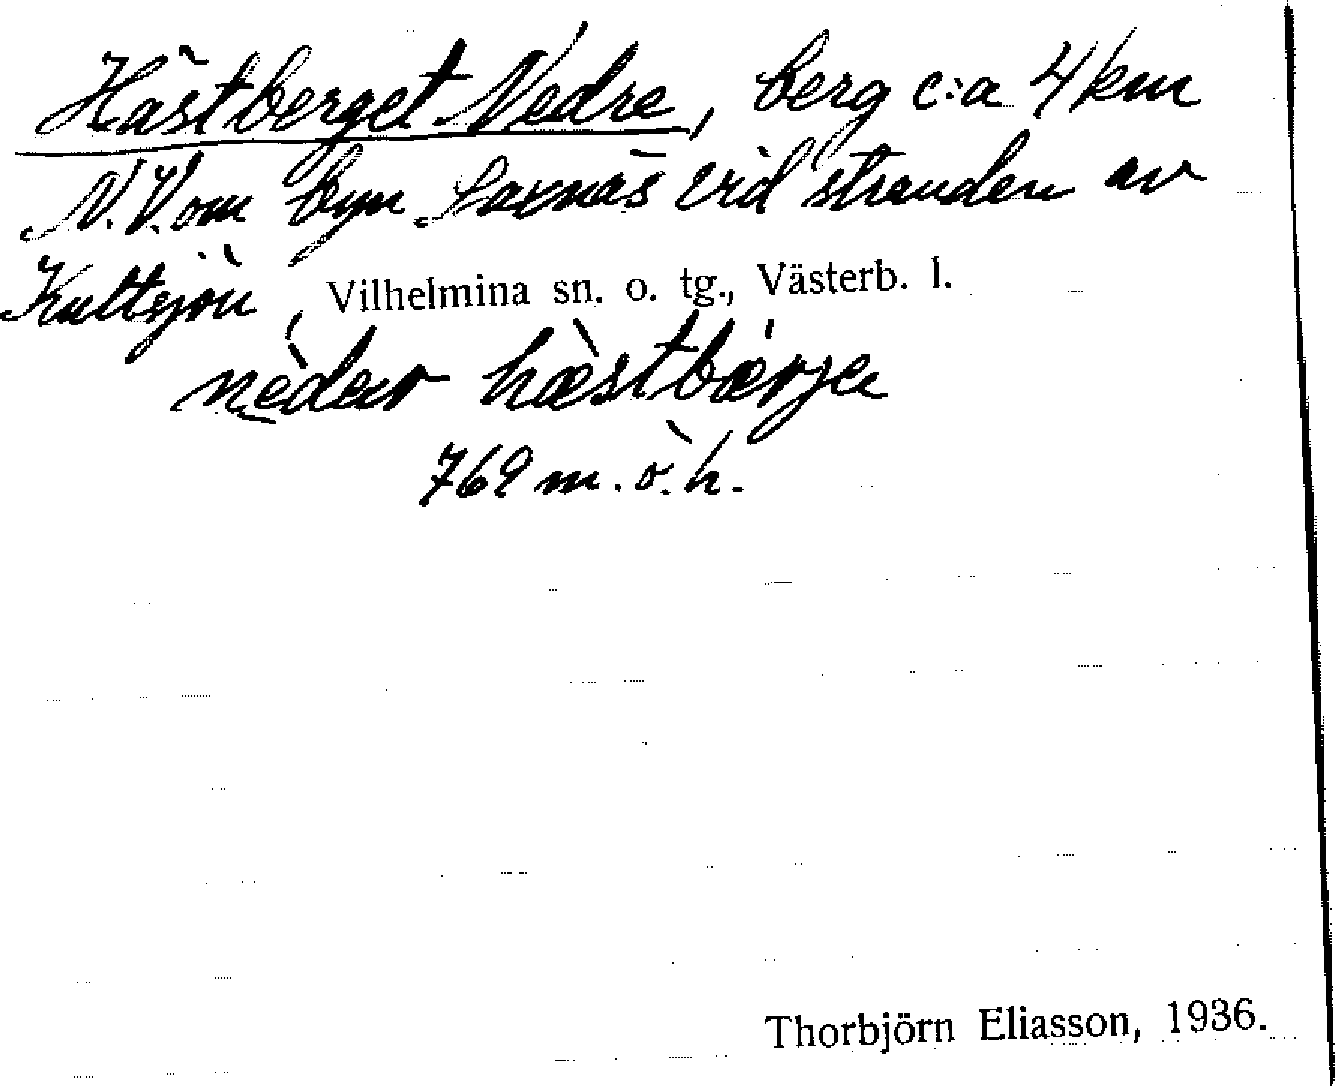 Hästberget Nedre, berg c:a 4 km
N.V. om byn Saxnäs vid stranden av
Kultsjön, Vilhelmina sn. o. tg., Västerb. l.
nèdær hæ̀stbærje
769 m.ö.h.
Thorbjörn Eliasson, 1936.